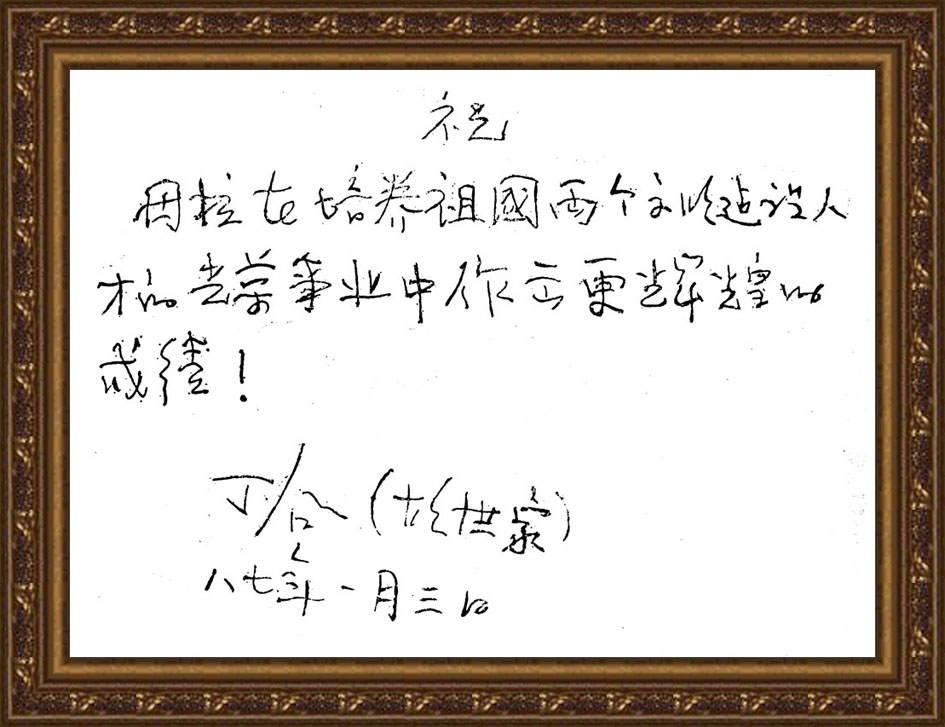 祝
母校在培养祖國两个文明建设人
才的光荣事业中作出更辉煌的
成绩！
丁(胡世
八七年一月三日